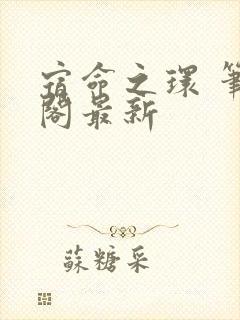 宿命之環 筆
閣最新
蘇糖采